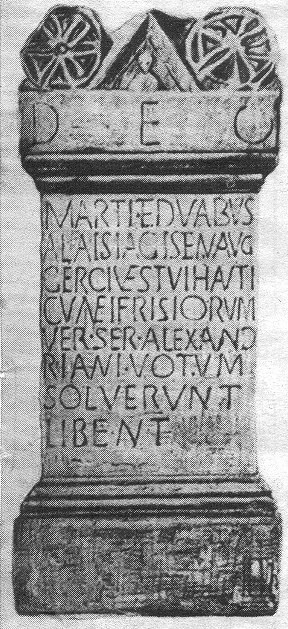 DEO
MARTI·EDVABVS
ALAISIAGISENAVG
GERCIVESTVIHATI
CVNEIFRISIORVM
VER·SER·ALEXAND
RIANI·VOTVM
SOLVERVNT
LIBENT